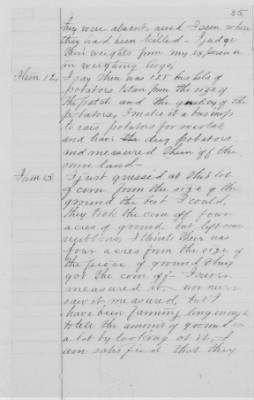 35
they were absent, and I seen where
they had been killed - I judge
their weights from my experience
in weighing hogs,
Item 12. I say there was 125 bushels of
potatoes taken from the size of
the patch and the quality of the
potatoes, I make it a business
to raise potatoes for market
and have dug potatoes
and measured them off the
same land -
Item 13 I just guessed at that lot
of corn from the size of the
ground the best I could,
they took the corn off four
acres of ground but left some
nubbins, I think there was
four acres from the size of
the piece of ground they
got the corn off - I never
measured it, nor never
saw it measured, but I
have been farming long enough
to tell the amount of ground in
a lot by looking at it, I
am satisfied that they